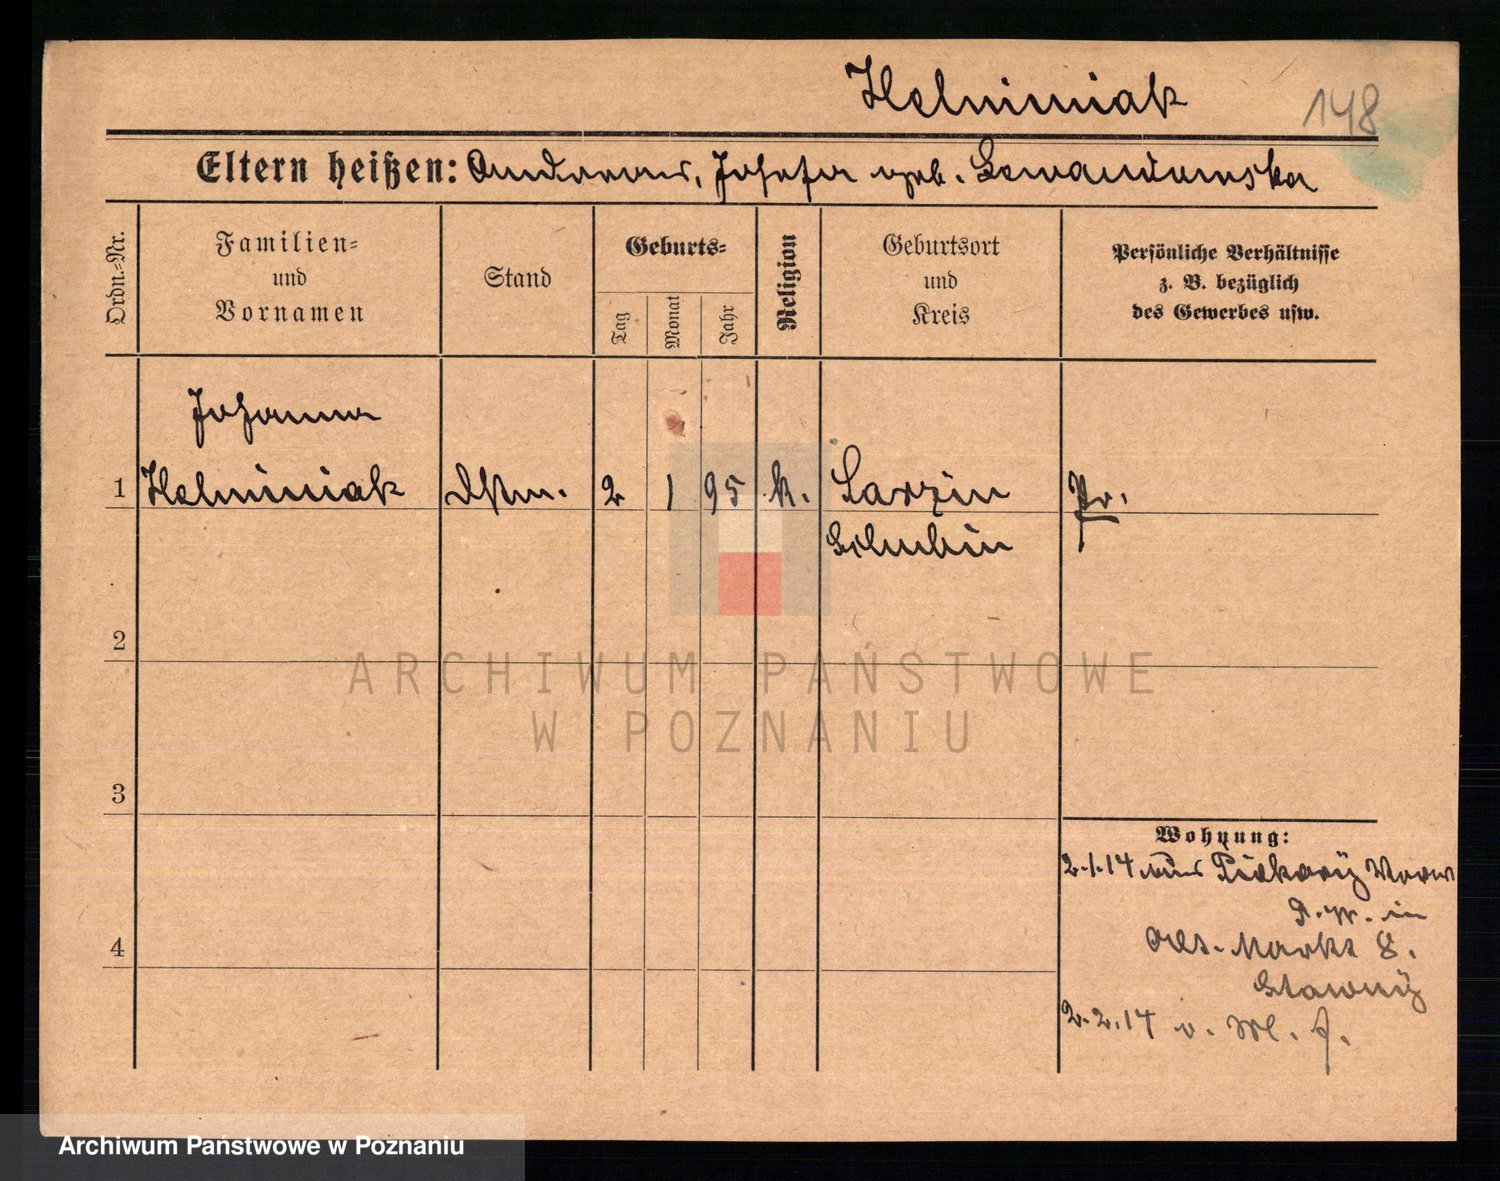 Helminiak
148
Eltern heißen: Andreas, Josefa geb. Lewandowska
Ordn.-Nr.
Familien-
und
Vornamen
Stand
Geburts-
Tag
Monat
Jahr
Religion
Geburtsort
und
Kreis
Persönliche Verhältnisse
z. B. bezüglich
des Gewerbes usw.
Johanna
1 Helminiak Dstm. 2 1 95 k. Larzin Pr.
Schubin
2
ARCHIWUM PAŃSTWOWE
W POZNANIU
3
Wohnung:
2.1.14 aus
in
4
Alt. Markt 8.
Slawny
2.2.14 v. M. f.
Archiwum Państwowe w Poznaniu